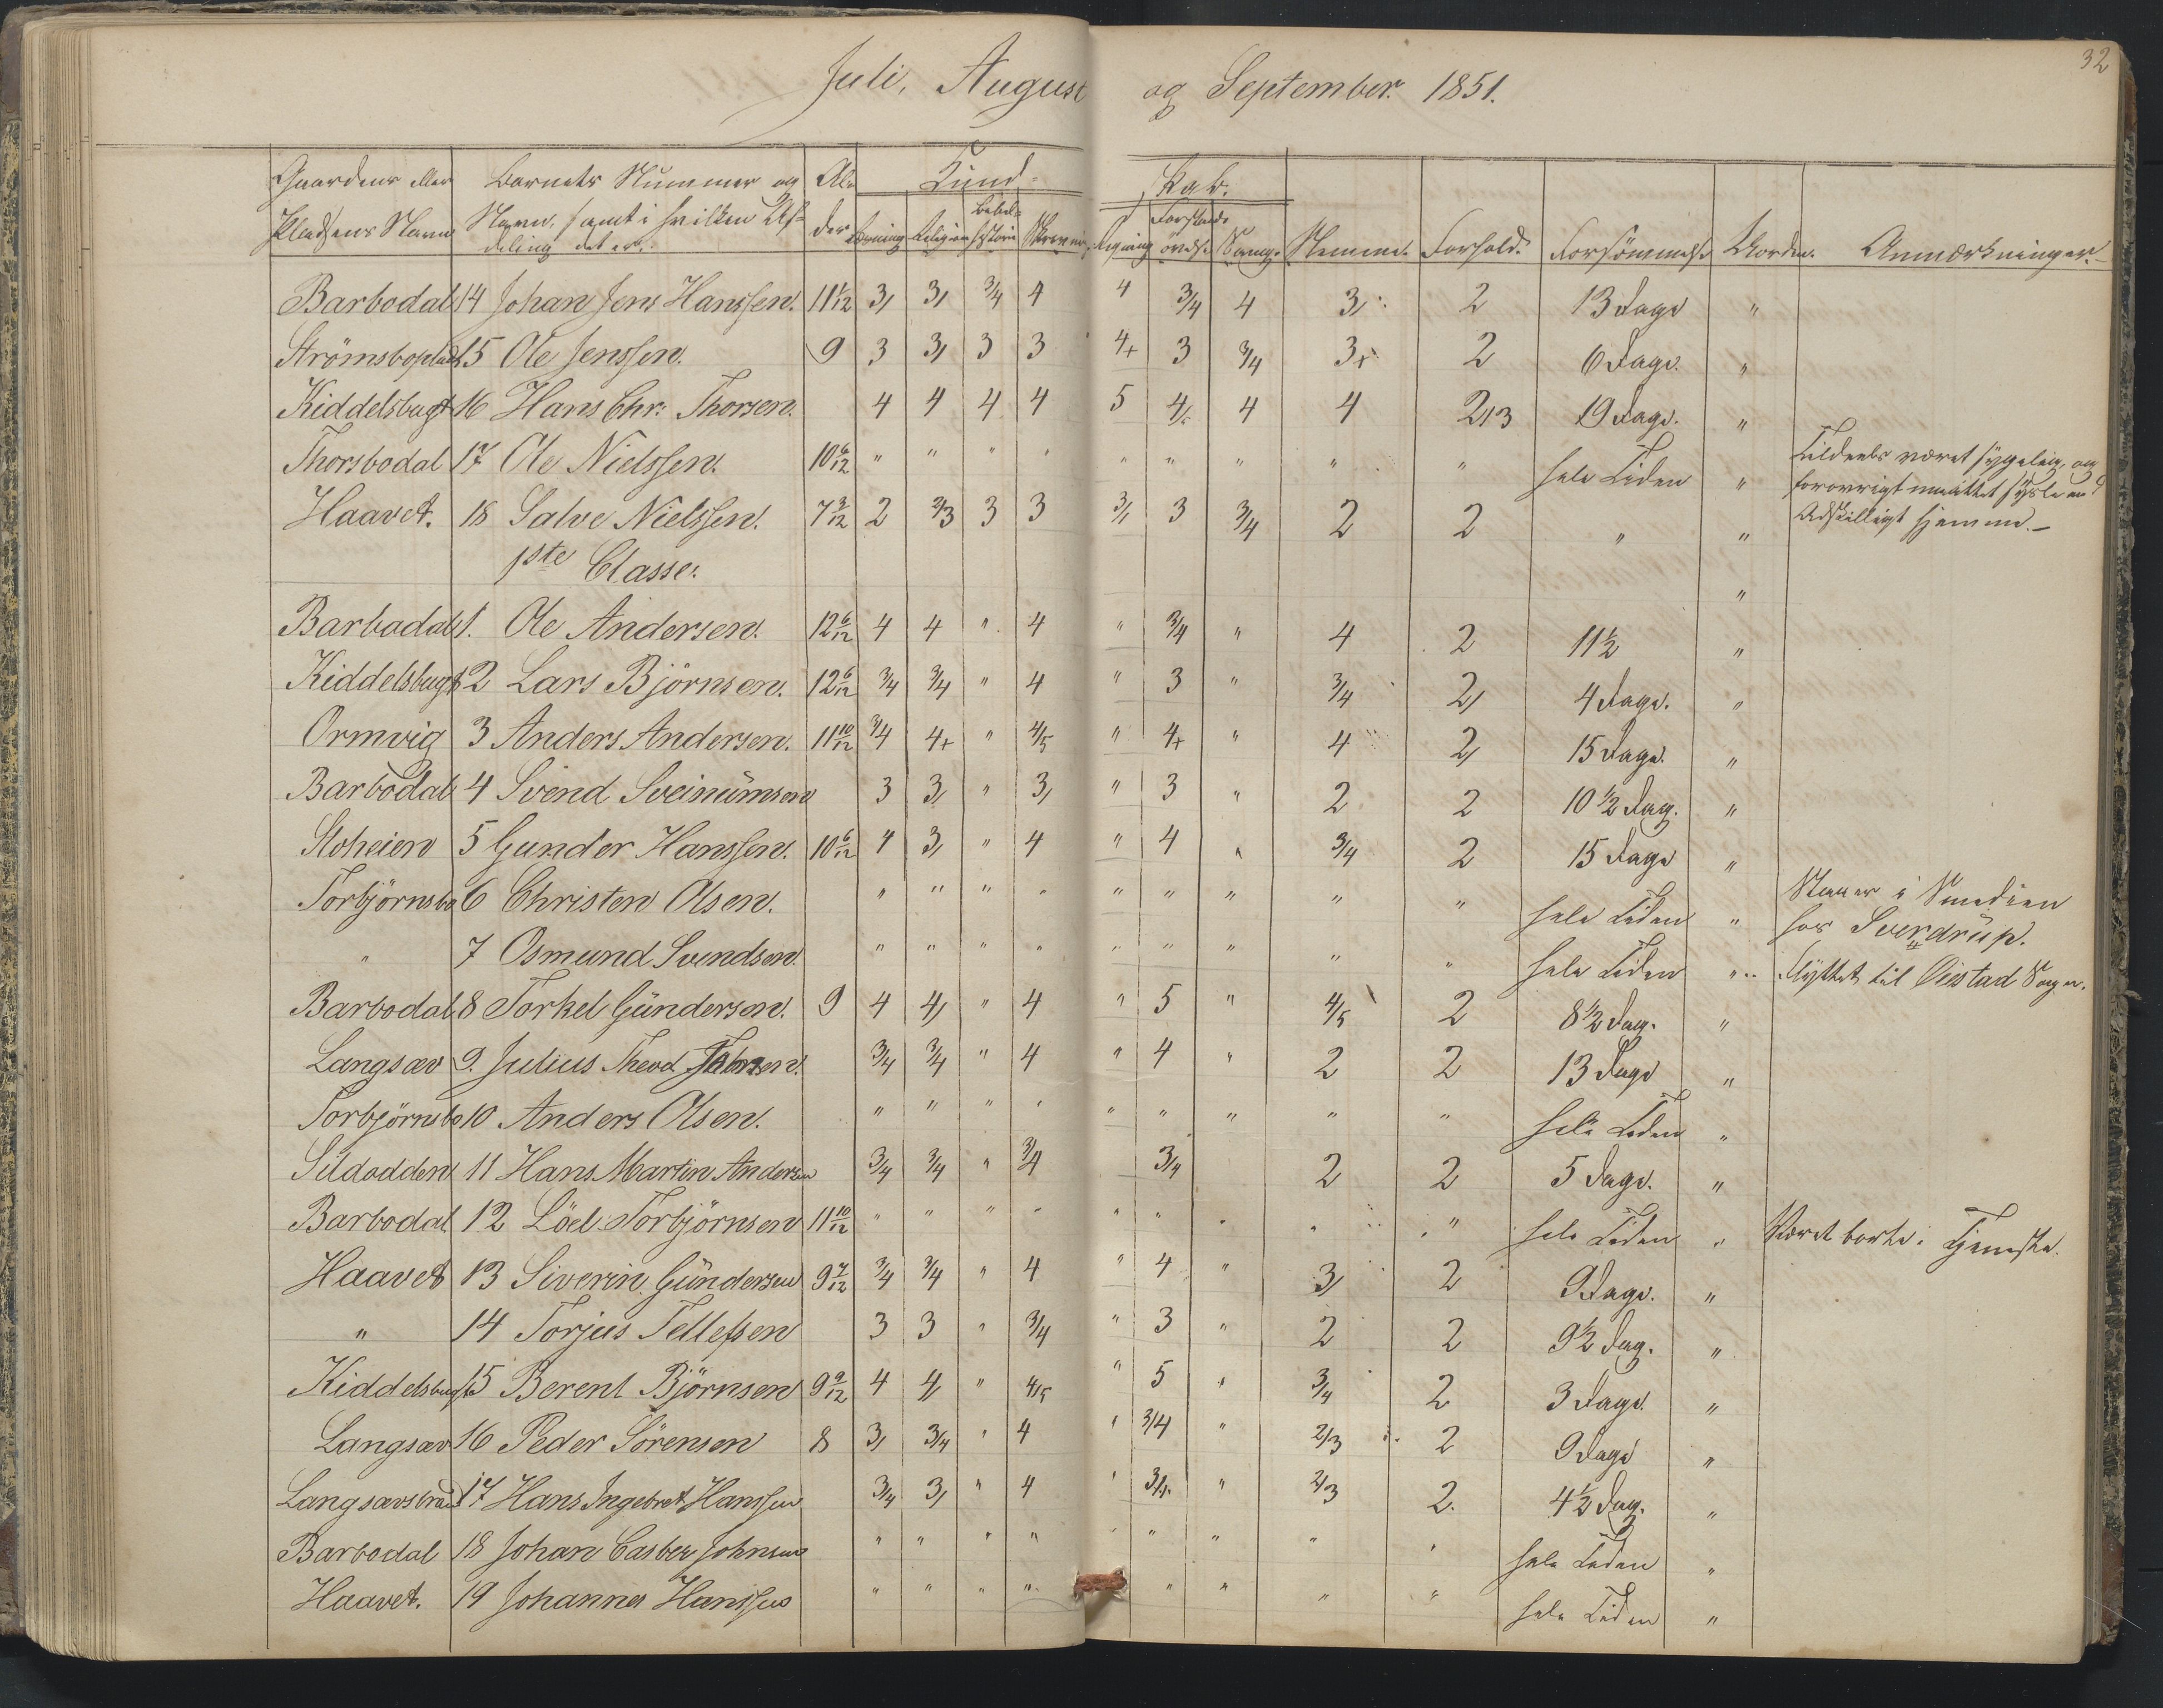 32
Juli, August og September 1851.
Gaardens eller Barnets Nummer og Al- Kund- skab.
Pladsens Navn Navn, samt i hvilken Af- der Læsning Religion Bibel- Skrivning Regning Forstands- Sang. Nemme. Forhold. Forsømmelse Orden. Anmærkninger
deling det er. historie øvelse
Barbodal 14 Johan Jens Hanssen. 11 1/12 3/ 3/ 3/4 4 4 3/4 4 3/ 2 13 Dage "
Strömsboplads 15 Ole Jenssen. 9 3 3/ 3 3 4+ 3 3/4 3+ 2 6 Dage. "
Kiddelsbugt 16 Hans Chr: Thorsen. 4 4 4 4 5 4/5 4 4 2/3 19 Dage. "
Thorsbodal 17 Ole Nielssen. 10 6/12 " " " " " " " " " hele Tiden " Tildeels været sygelig, og
forøvrigt maattet sysle med
Haavet. 18 Salve Nielssen. 7 3/12 2 2/3 3 3 3/ 3 3/4 2 2 " " Adskilligt hjemme.-
1ste Classe. "
Barbodal 1. Ole Andersen. 12 6/12 4 4 " 4 " 3/4 " 4 2 11½ "
Kiddelsbugt 2 Lars Björnsen. 12 6/12 3/4 3/4 " 4 " 3 " 3/4 2/ 4 Dage. "
Ormvig 3 Anders Andersen. 11 10/12 3/4 4+ " 4/5 " 4+ " 4 2/ 15 Dage. "
Barbodal 4 Svend Sveinümsen 3 3/ " 3/ " 3 " 2 2 10½ Dag. "
Stoheien 5 Gunder Hanssen. 10 6/12 4 3/ " 4 " 4 " 3/4 2 15 Dage "
Torbjörnsbo 6 Christen Olsen. " " " " " " " " " hele Tiden " Staaer i Smedien
hos Sverdrüp.
" 7 Osmund Svendsen. " " " " " " " " " hele Tiden " Flyttet til Öiestad Sogn.
Barbodal 8 Torkel Gündersen. 9 4 4/ " 4 " 5 " 4/5 2 8½ Dag. "
Langsæv 9. Julius Theod. 3/4 3/4 " 4 " 4 " 2 2 13 Dage "
Torbjörnsbo 10 Anders Olsen. " " " " " " " " " hele Tiden "
Sildodden 11 Hans Martin Andersen 3/4 3/4 " 3/4 3/4 2 2 5 Dage. "
Barbodal 12 Löel Torbjörnsen 11 10/12 " " " " " " " " " hele Tiden " Været borte i Tjeneste.
Haavet 13 Siverin Gündersen 9 7/12 3/4 3/4 " 4 " 4 " 3/ 2 9 Dage. "
" 14 Torjus Tellefsen 3 3 " 3/4 " 3 " 2 2 9½ Dag. "
Kiddelsbugt 15 Berent Björnsen 9 9/12 4 4/ " 4/5 " 5 " 3/4 2 3 Dage. "
Langsæv 16 Peder Sörensen 8 3/ 3/4 " 4 " 3/4 " 2/3 2 9 Dage "
17 Hans Ingebret Hanssen 3/4 3/ " 4 " 3/4 " 2/3 2. 4½ Dag. "
Barbodal 18 Johan Casber Johnsen " " " " " " " " " hele Tiden "
Haavet. 19 Johannes Hanssen " " " " " " " " hele Tiden "